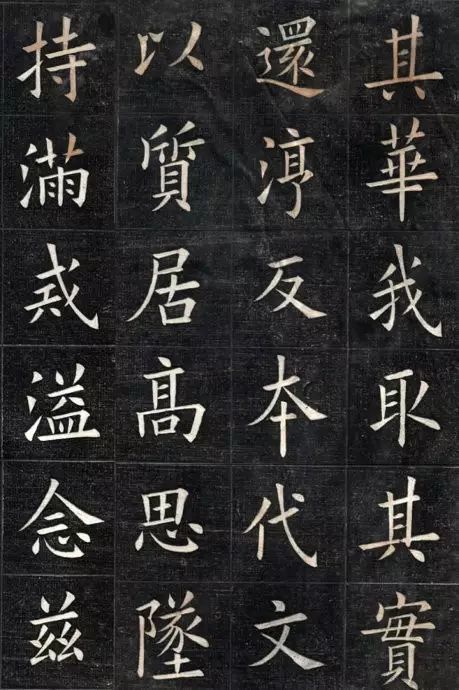 其華我取其實
還淳反本代文
以質居高思墜
持滿戒溢念茲